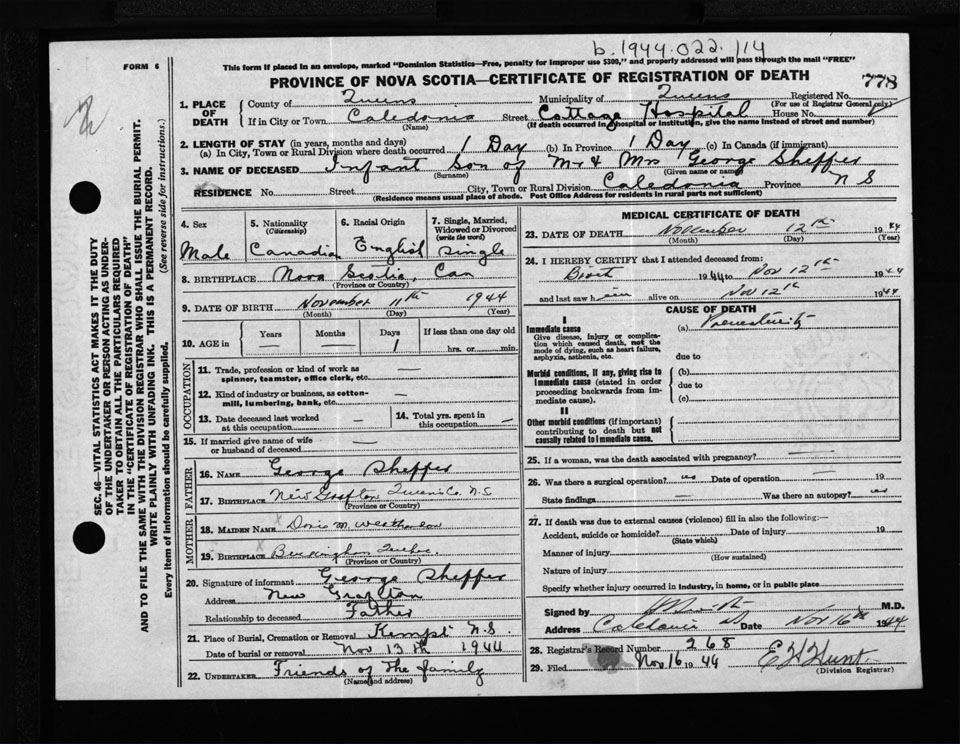 b. 1944.022.114
FORM 6
This form if placed in an envelope, marked "Dominion Statistics—Free, penalty for improper use $300," and properly addressed will pass through the mail "FREE"
PROVINCE OF NOVA SCOTIA—CERTIFICATE OF REGISTRATION OF DEATH
778
SEC. 46—VITAL STATISTICS ACT MAKES IT THE DUTY
OF THE UNDERTAKER OR PERSON ACTING AS UNDER-
TAKER TO OBTAIN ALL THE PARTICULARS REQUIRED
IN THE "CERTIFICATE OF REGISTRATION OF DEATH"
AND TO FILE THE SAME WITH THE DIVISION REGISTRAR WHO SHALL ISSUE THE BURIAL PERMIT.
WRITE PLAINLY WITH UNFADING INK. THIS IS A PERMANENT RECORD.
Every item of information should be carefully supplied. (See reverse side for instructions.)
1. PLACE OF DEATH
County of Queens Municipality of Queens Registered No.
(For use of Registrar General only)
If in City or Town Caledonia Street Cottage Hospital House No.
(Name) (If death occurred in hospital or institution, give the name instead of street and number)
2. LENGTH OF STAY (in years, months and days)
(a) In City, Town or Rural Division where death occurred 1 Day (b) In Province 1 Day (c) In Canada (if immigrant)
3. NAME OF DECEASED Infant Son of Mr & Mrs George Sheffer
(Surname) (Given name or names)
RESIDENCE No. Street City, Town or Rural Division Caledonia Province N S
(Residence means usual place of abode. Post Office Address for residents in rural parts not sufficient)
4. Sex 5. Nationality (Citizenship) 6. Racial Origin 7. Single, Married, Widowed or Divorced (write the word)
Male Canadian English Single
8. BIRTHPLACE Nova Scotia, Can
(Province or Country)
9. DATE OF BIRTH November 11th 1944
(Month) (Day) (Year)
10. AGE in Years Months Days If less than one day old
— — 1 hrs. or min.
OCCUPATION
11. Trade, profession or kind of work as
spinner, teamster, office clerk, etc. —
12. Kind of industry or business, as cotton-
mill, lumbering, bank, etc. —
13. Date deceased last worked
at this occupation —
14. Total yrs. spent in
this occupation —
15. If married give name of wife
or husband of deceased —
FATHER
16. NAME George Sheffer
17. BIRTHPLACE New Grafton Queens Co. N.S
(Province or Country)
MOTHER
18. MAIDEN NAME Doris M.
19. BIRTHPLACE Buckingham Quebec
(Province or Country)
20. Signature of informant George Sheffer
Address New Grafton
Relationship to deceased Father
21. Place of Burial, Cremation or Removal Kempt N.S.
Date of burial or removal Nov 13th 1944
22. UNDERTAKER Friends of The family
(Name and address)
MEDICAL CERTIFICATE OF DEATH
23. DATE OF DEATH November 12th 1944
(Month) (Day) (Year)
24. I HEREBY CERTIFY that I attended deceased from:
Birth 1944 to Nov 12th 1944
and last saw him alive on Nov 12th 1944
CAUSE OF DEATH
I
Immediate cause (a) Prematurity
Give disease, injury or complica-
tion which caused death, not the
mode of dying, such as heart failure,
asphyxia, asthenia, etc. due to
Morbid conditions, if any, giving rise to (b)
immediate cause (stated in order due to
proceeding backwards from im-
mediate cause). (c)
II
Other morbid conditions (if important)
contributing to death but not
causally related to immediate cause.
25. If a woman, was the death associated with pregnancy? —
26. Was there a surgical operation? no Date of operation 19
State findings Was there an autopsy? no
27. If death was due to external causes (violence) fill in also the following:—
Accident, suicide or homicide? Date of injury 19
(State which)
Manner of injury
(How sustained)
Nature of injury
Specify whether injury occurred in industry, in home, or in public place
Signed by M.D.
Address Caledonia NS Date Nov 16th 1944
28. Registrar's Record Number 268
29. Filed Nov 16 1944 E H Hunt
(Division Registrar)